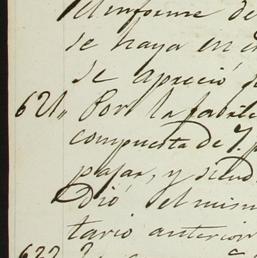 el informe de
se haya en
se apreció
621,, Por la fabric
compuesta de 7. p
pajar, y siend
dió el mism
tario anterior
622